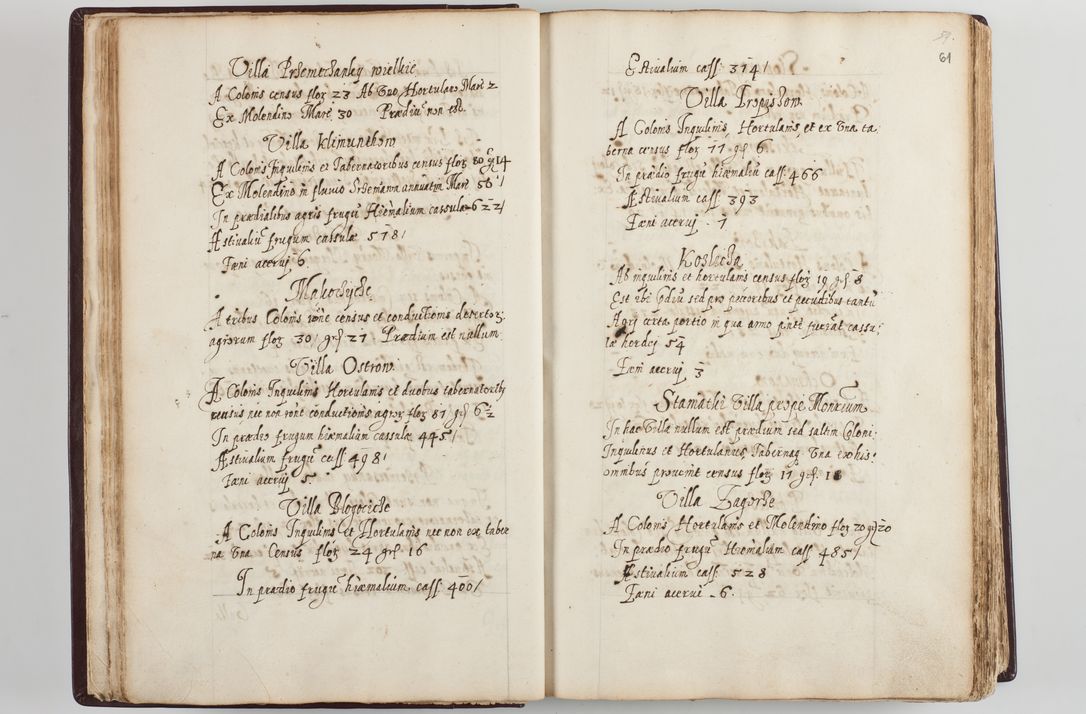 Villa Przemęchanky wielkie
A Colonis census flor 23 Ab Vno Hortulano Marc 2
Ex Molendino Marc 30 Prædiũ non est.
Villa Klimunthow
A Colonis Inquilinis et Tabernatoribus census flor 80 gr 14
Ex Molendino in fluvio Srzemawa annuatim Marc 56 /
In prædialibus agris frugũ Hiemalium cassulæ 622 /
Æstivaliũ frugum cassulæ 578 /
Fæni acervi 6.
Makoczycze
A tribus Colonis rõne census et conductionis desertor:
agrorum flor 30 / grs 27 Prædium est nullum
Villa Ostrow
A Colonis Inquilinis Hortulanis et duobus tabernatorib
census nec non rõne conductionis agror flor 87 / grs 6 ½
In prædio frugum hiemalium cassulæ 445 /
Æstivalium frugũ cass 498 /
Fæni acervi 5.
Villa Blogocicze
A Colonis Inquilinis et Hortulanis nec non ex taber
na Vna Census flor 24 grs 16
In prædio frugũ hiemalium cass: 400 /
Villa
59.
61
Estivalium cass: 374 /
Villa Propyskow
A Colonis Inquilinis, Hortulanis, et ex Vna ta
berna census flor 77 grs 6.
In prædio frugũ hiæmaliũ cass: 466
Æstivalium cass: 393
Fæni acervi . 7
Kozlicha
Ab inquilinis et hortulanis census flor 19 grs 8
Est ibi prædiũ sed pro pecoribus et pecudibus tantũ
Agri certa portio in qua anno pñti fuerat cassu:
læ hordei 54
Fæni acervi 3
Stawathi Villa prope Montium
In hac Villa nullum est prædium sed saltim Coloni:
Inquilinus et Hortulanus, Tabernaq Vna ex his:
omnibus provenit census flor 17 grs 18
Villa Zagorze
A Colonis Hortulanis et Molendino flor 20 grs 20
In prædio frugũ Hiemalium cass 485 /
Æstivalium cass: 528
Fæni acervi . 6.